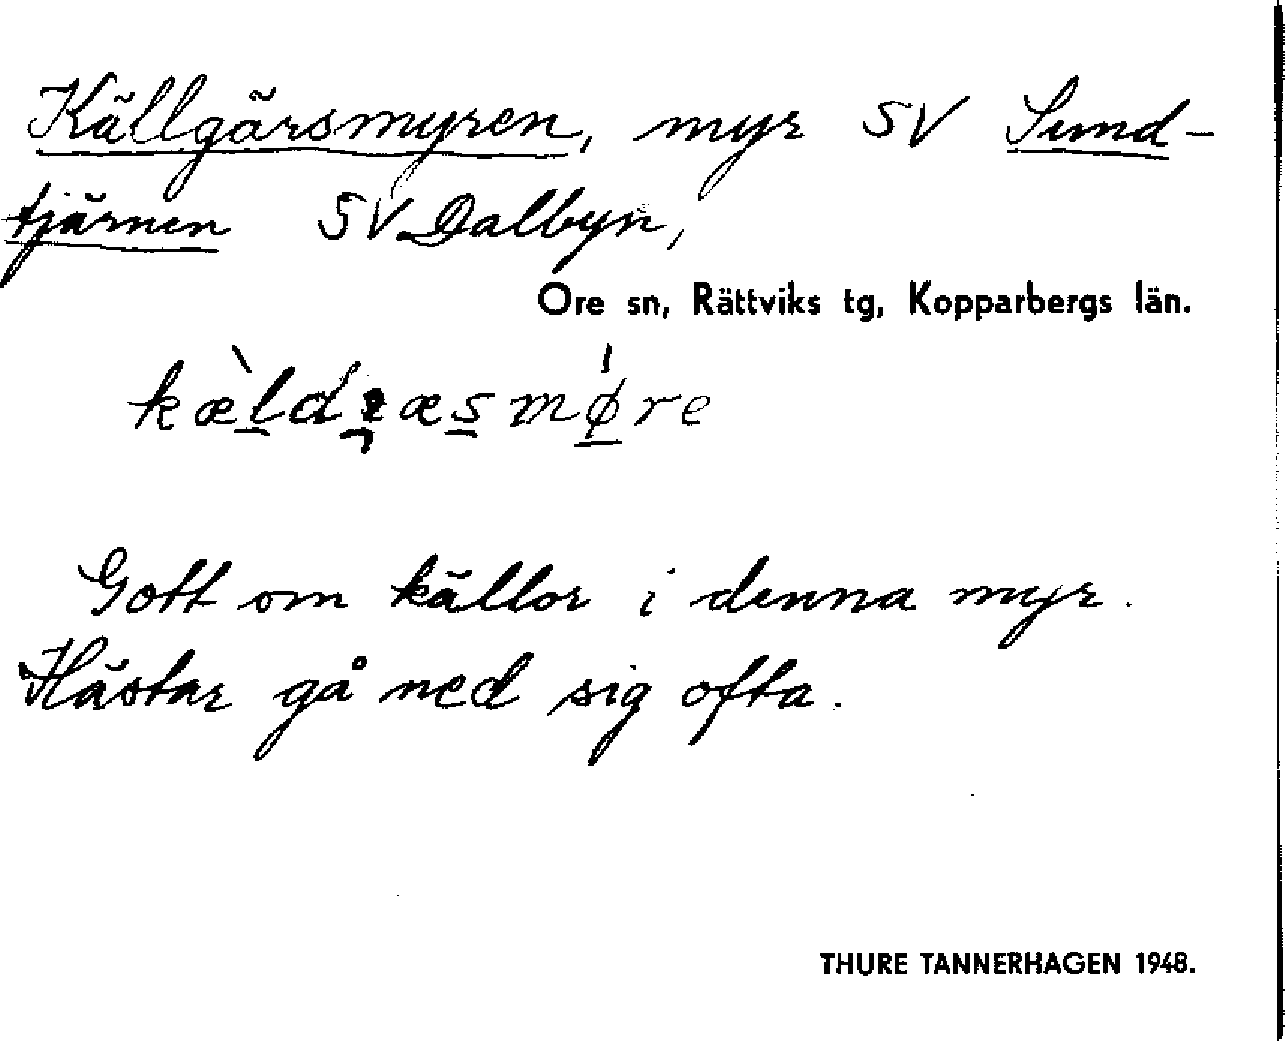 Källgärsmyren, myr SV Sund-
tjärnen SV Dalbyn,
Ore sn, Rättviks tg, Kopparbergs län.
Gott om källor i denna myr.
Hästar gå ned sig ofta.
THURE TANNERHAGEN 1948.